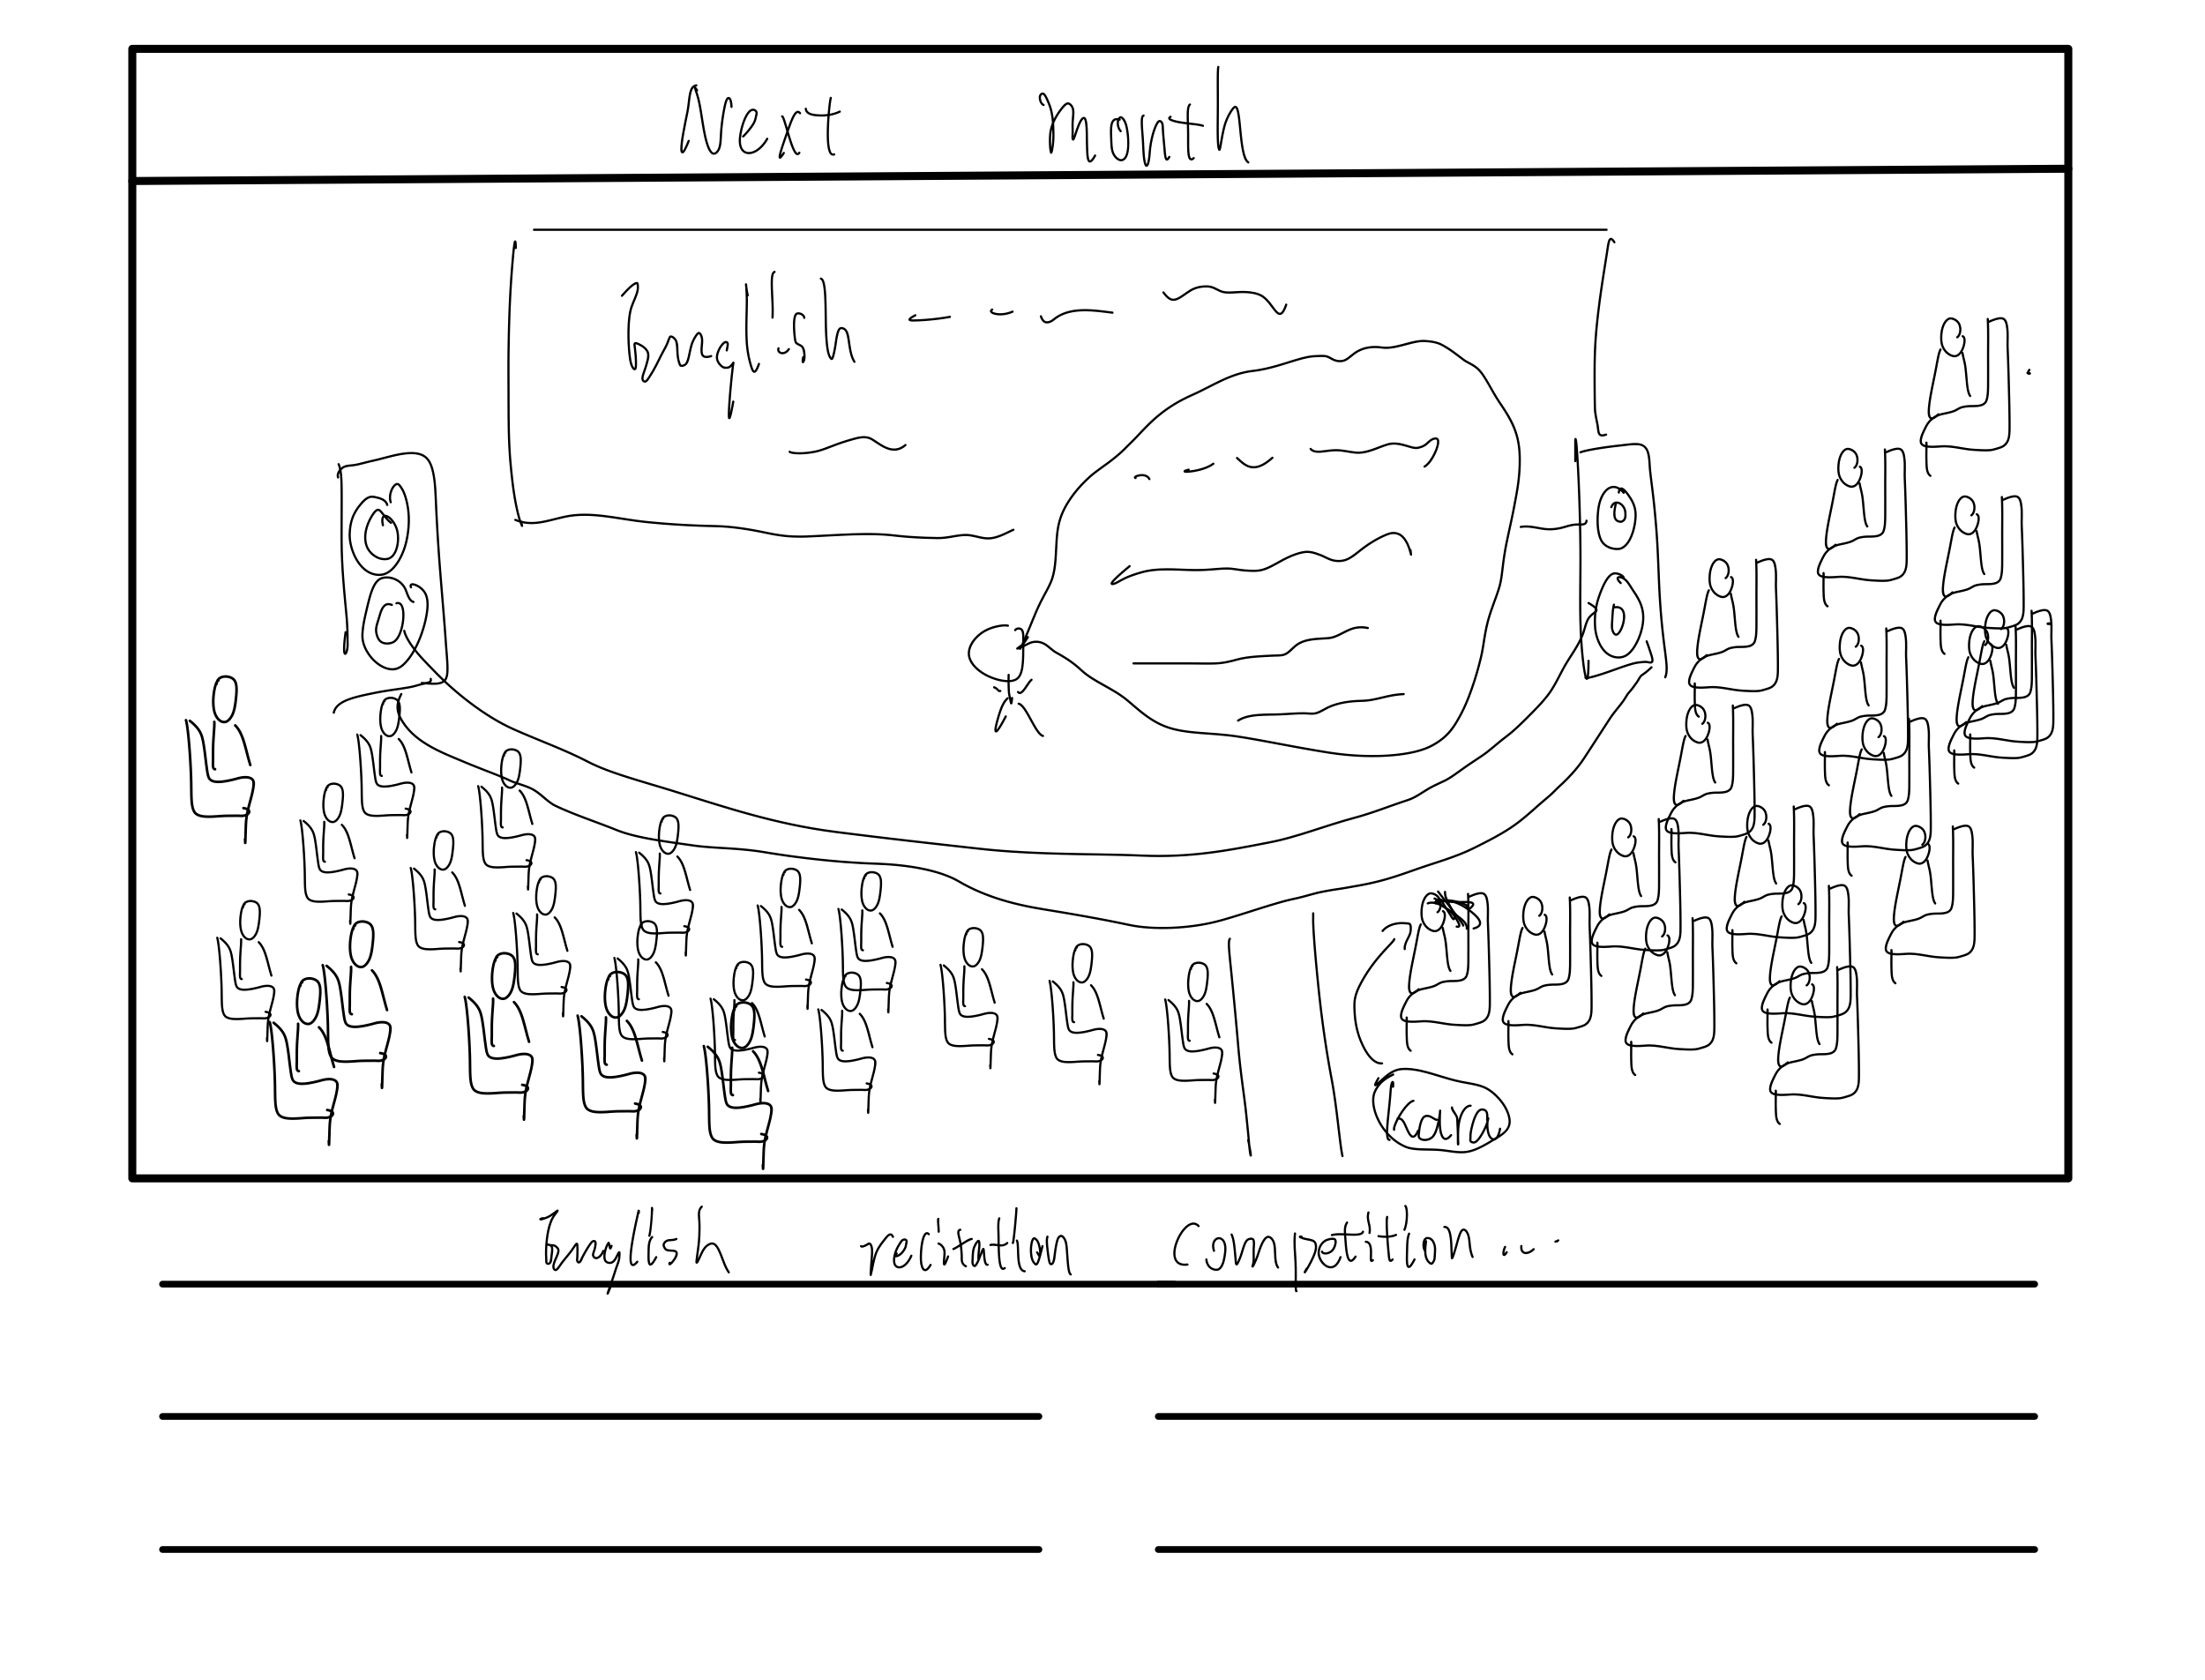 Next month
English
Kara
English recitation Competition...